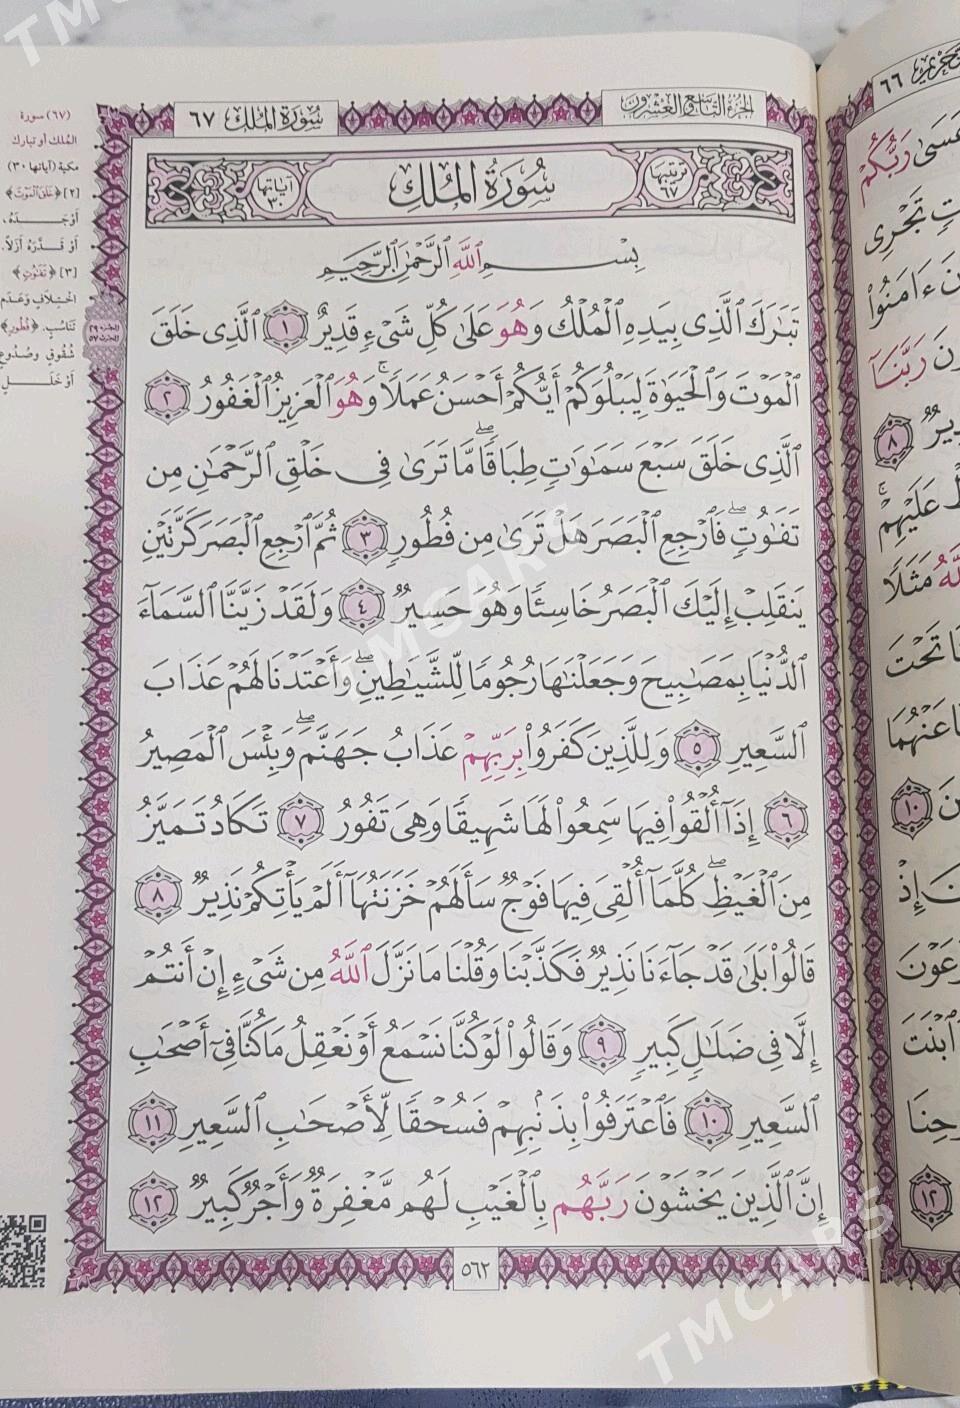 سُورَةُ المُلْك ٦٧
الجُزءُ التَّاسِعُ وَالعِشْرُونَ
ترتيبها ٦٧
سُورَةُ المُلْكِ
آياتها ٣٠
بِسْمِ ٱللَّهِ ٱلرَّحْمَٰنِ ٱلرَّحِيمِ
تَبَٰرَكَ ٱلَّذِى بِيَدِهِ ٱلْمُلْكُ وَهُوَ عَلَىٰ كُلِّ شَىْءٍ قَدِيرٌ ١ ٱلَّذِى خَلَقَ
ٱلْمَوْتَ وَٱلْحَيَوٰةَ لِيَبْلُوَكُمْ أَيُّكُمْ أَحْسَنُ عَمَلًا ۚ وَهُوَ ٱلْعَزِيزُ ٱلْغَفُورُ ٢
ٱلَّذِى خَلَقَ سَبْعَ سَمَٰوَٰتٍ طِبَاقًا ۖ مَّا تَرَىٰ فِى خَلْقِ ٱلرَّحْمَٰنِ مِن
تَفَٰوُتٍ ۖ فَٱرْجِعِ ٱلْبَصَرَ هَلْ تَرَىٰ مِن فُطُورٍ ٣ ثُمَّ ٱرْجِعِ ٱلْبَصَرَ كَرَّتَيْنِ
يَنقَلِبْ إِلَيْكَ ٱلْبَصَرُ خَاسِئًا وَهُوَ حَسِيرٌ ٤ وَلَقَدْ زَيَّنَّا ٱلسَّمَآءَ
ٱلدُّنْيَا بِمَصَٰبِيحَ وَجَعَلْنَٰهَا رُجُومًا لِّلشَّيَٰطِينِ ۖ وَأَعْتَدْنَا لَهُمْ عَذَابَ
ٱلسَّعِيرِ ٥ وَلِلَّذِينَ كَفَرُوا۟ بِرَبِّهِمْ عَذَابُ جَهَنَّمَ ۖ وَبِئْسَ ٱلْمَصِيرُ
٦ إِذَآ أُلْقُوا۟ فِيهَا سَمِعُوا۟ لَهَا شَهِيقًا وَهِىَ تَفُورُ ٧ تَكَادُ تَمَيَّزُ
مِنَ ٱلْغَيْظِ ۖ كُلَّمَآ أُلْقِىَ فِيهَا فَوْجٌ سَأَلَهُمْ خَزَنَتُهَآ أَلَمْ يَأْتِكُمْ نَذِيرٌ ٨
قَالُوا۟ بَلَىٰ قَدْ جَآءَنَا نَذِيرٌ فَكَذَّبْنَا وَقُلْنَا مَا نَزَّلَ ٱللَّهُ مِن شَىْءٍ إِنْ أَنتُمْ
إِلَّا فِى ضَلَٰلٍ كَبِيرٍ ٩ وَقَالُوا۟ لَوْ كُنَّا نَسْمَعُ أَوْ نَعْقِلُ مَا كُنَّا فِىٓ أَصْحَٰبِ
ٱلسَّعِيرِ ١٠ فَٱعْتَرَفُوا۟ بِذَنۢبِهِمْ فَسُحْقًا لِّأَصْحَٰبِ ٱلسَّعِيرِ ١١
إِنَّ ٱلَّذِينَ يَخْشَوْنَ رَبَّهُم بِٱلْغَيْبِ لَهُم مَّغْفِرَةٌ وَأَجْرٌ كَبِيرٌ ١٢
٥٦٢
(٦٧) سورة
المُلك أو تبارك
مكية (آياتها ٣٠)
[٢] ﴿خَلَقَ ٱلْمَوْتَ﴾
أوْجَدَهُ،
أوْ قَدَّرَهُ أزَلاً.
[٣] ﴿تَفَٰوُتٍ﴾
اخْتِلافٍ وعَدَمِ
تَنَاسُبٍ. ﴿فُطُورٍ﴾
شُقُوقٍ وصُدُوعٍ
أوْ خَلَلٍ
الجزء ٢٩
الحزب ٥٧
٦٦
عَسَىٰ رَبُّكُمْ
تَجْرِى
ءَامَنُوا۟
رَبَّنَآ
٨
عَلَيْهِمْ ۚ
مَثَلًا
تَحْتَ
عَنْهُمَا
١٠
إِذْ
ٱبْنَتَ
١٢
TMCARS
TMCARS
TMCARS